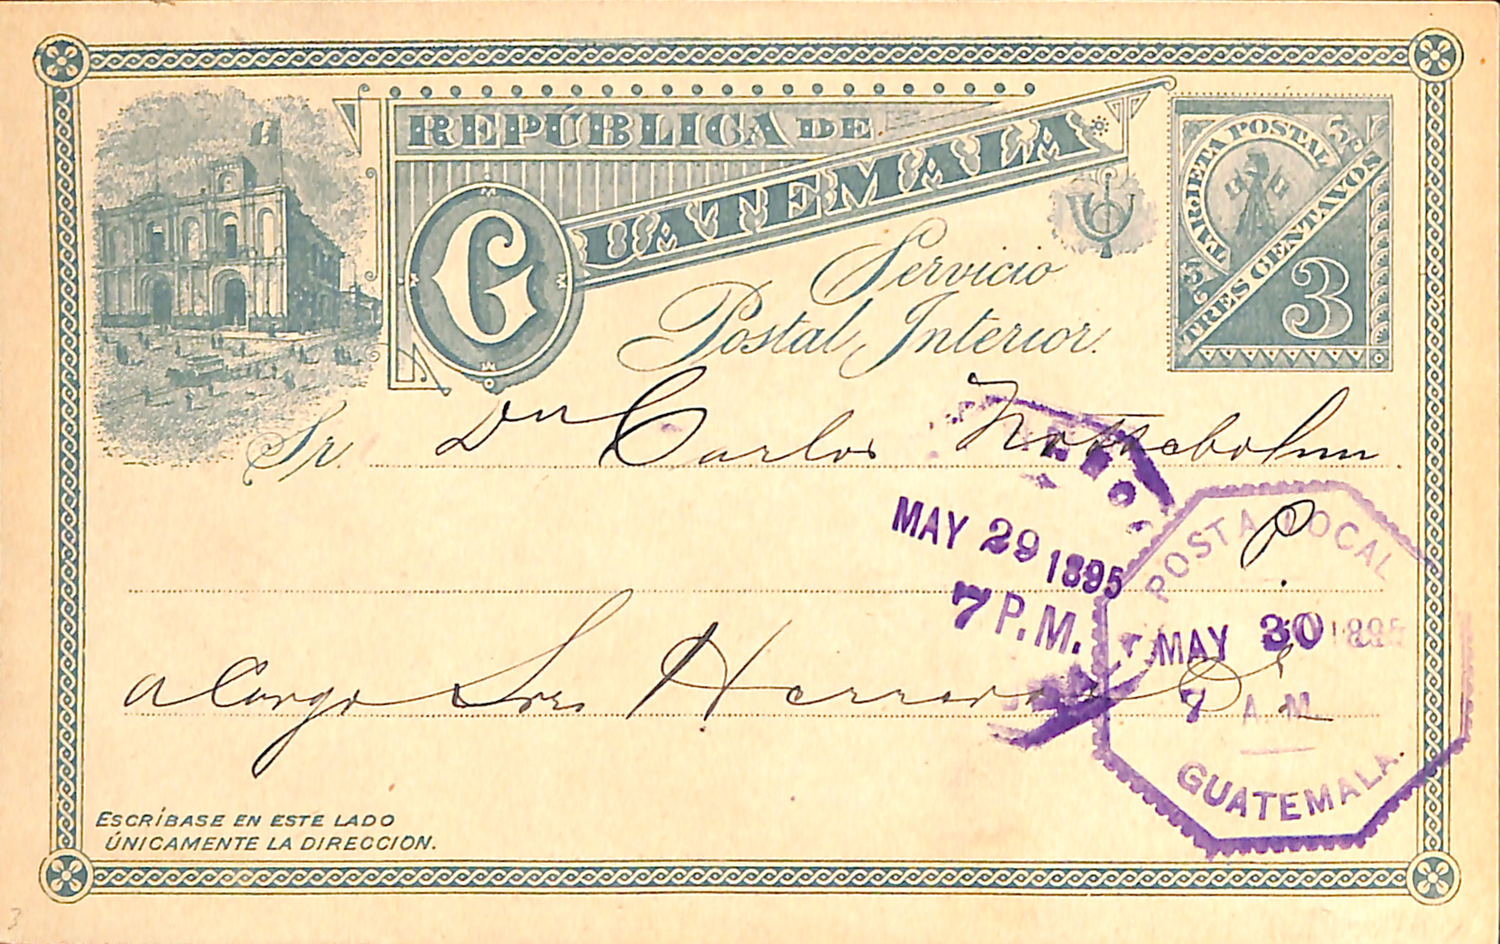 REPÚBLICA DE
GUATEMALA
Servicio
Postal Interior.
TARJETA POSTAL
TRES CENTAVOS
3
Sr. Dn Carlos Nottebohm
P.
MAY 29 1895
7 P.M.
POSTA LOCAL
MAY 30 1895
7 A M
GUATEMALA.
a Cargo Sres Herrera
ESCRÍBASE EN ESTE LADO
ÚNICAMENTE LA DIRECCION.
3